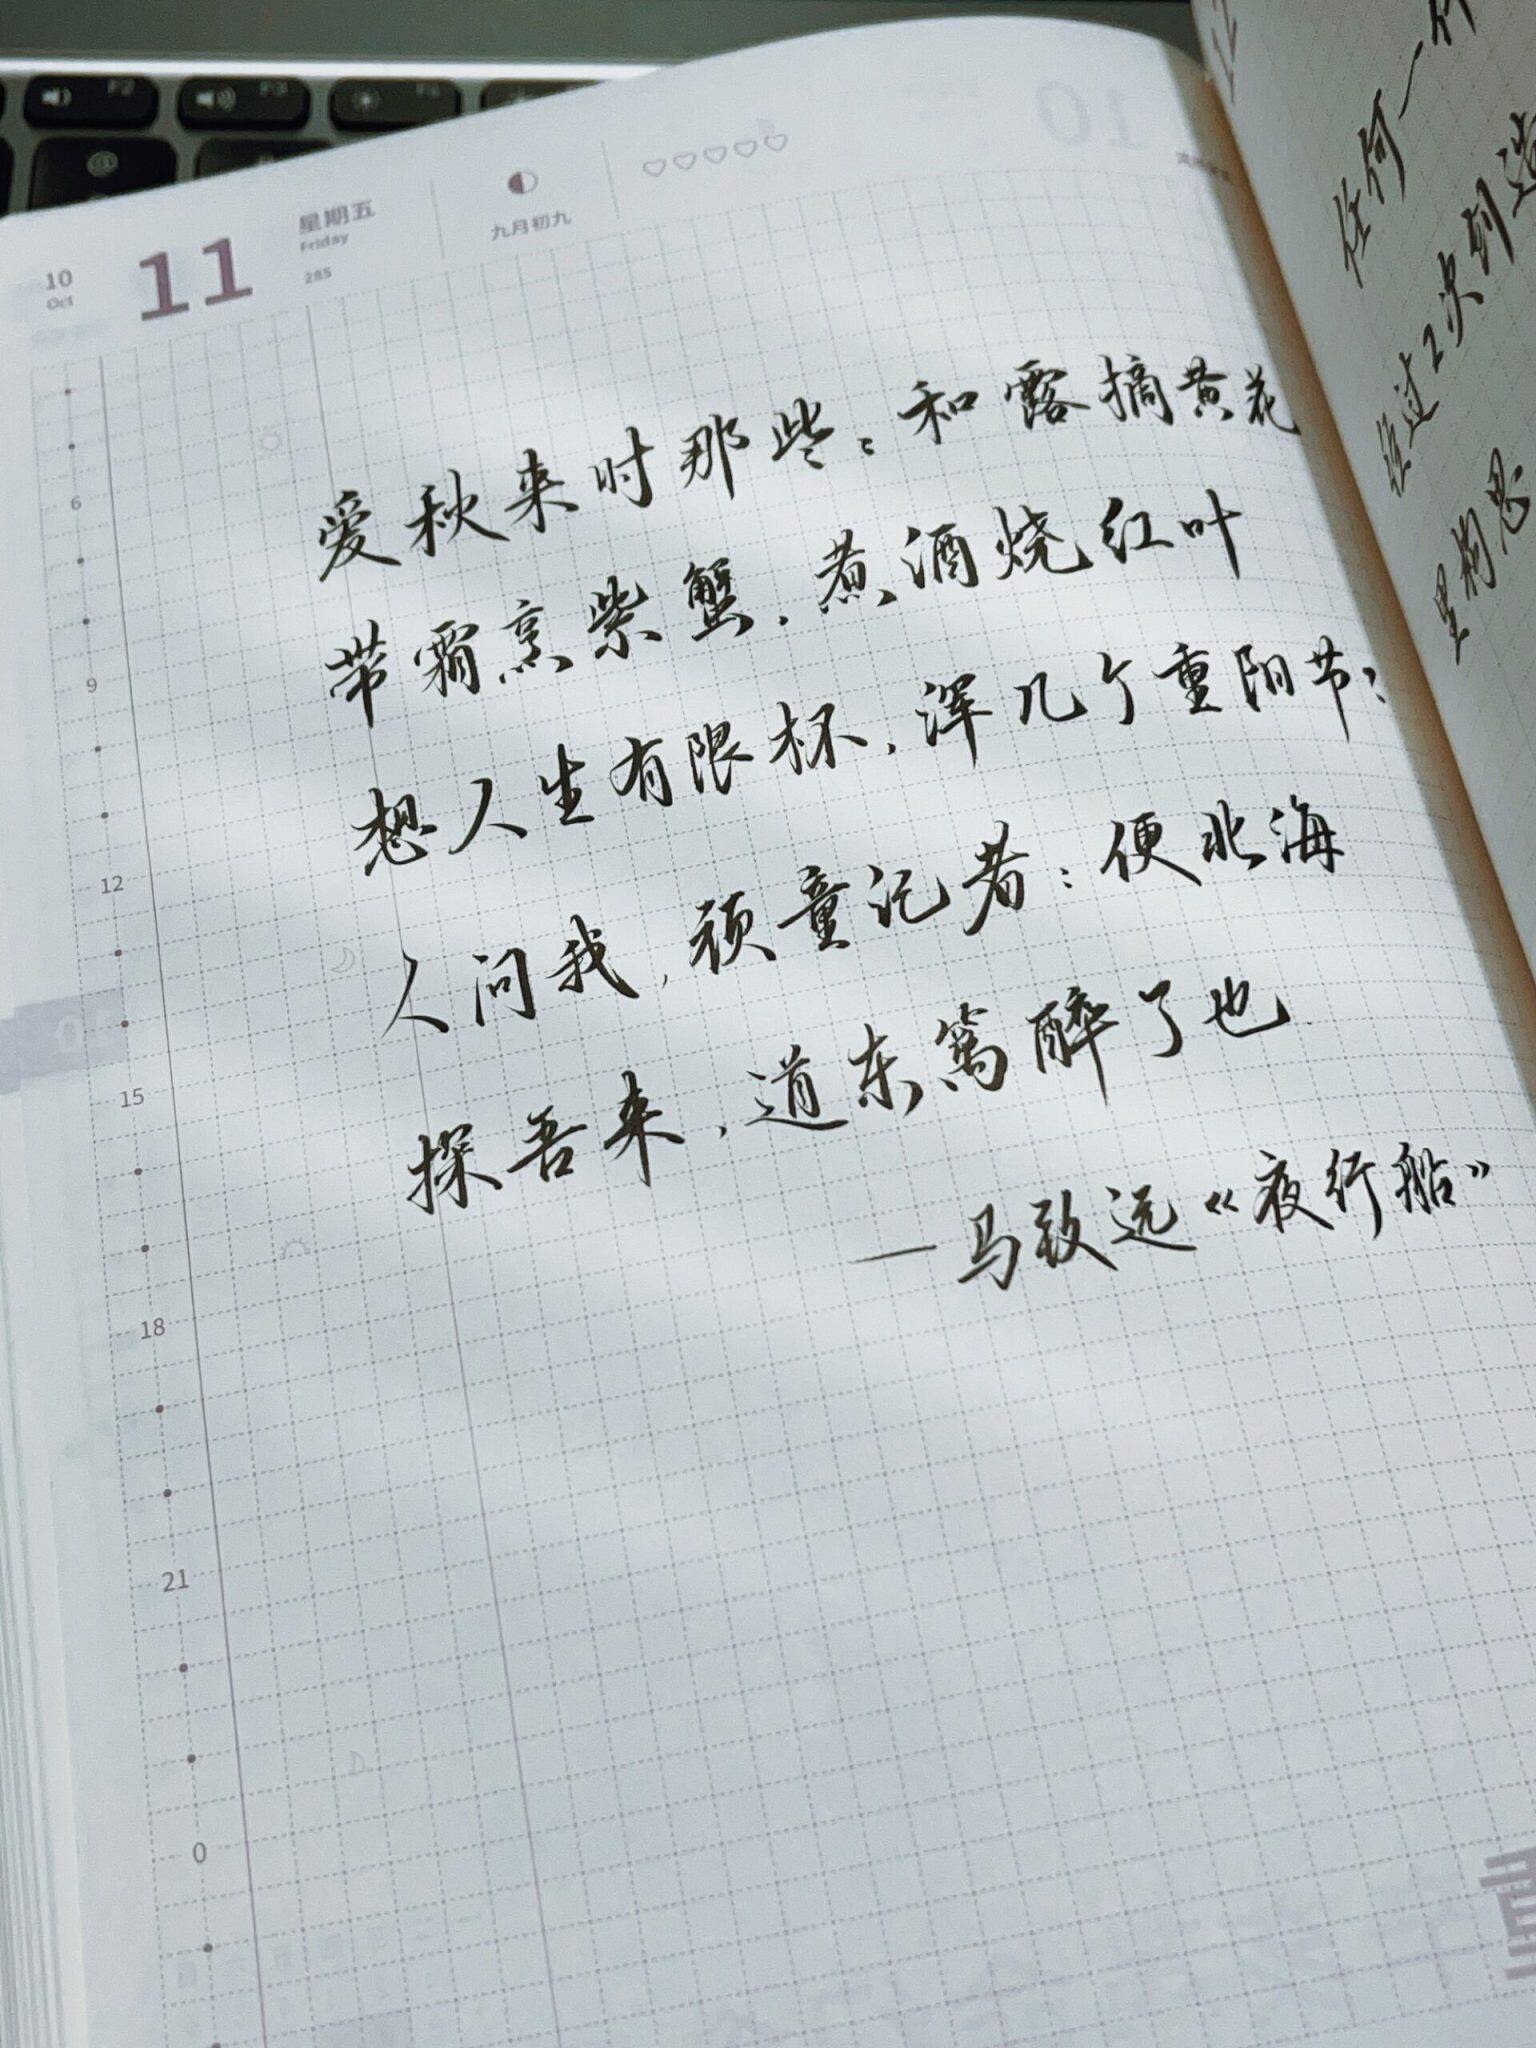 F2
F3
10
Oct
11
星期五
Friday
285
九月初九
爱秋来时那些：和露摘黄花
带霜烹紫蟹，煮酒烧红叶
想人生有限杯，浑几个重阳节？
人问我，顽童记者：便北海
探吾来，道东篱醉了也
—马致远《夜行船》
6
9
12
15
18
21
0
12
任何一个
经过2次创造
里构思